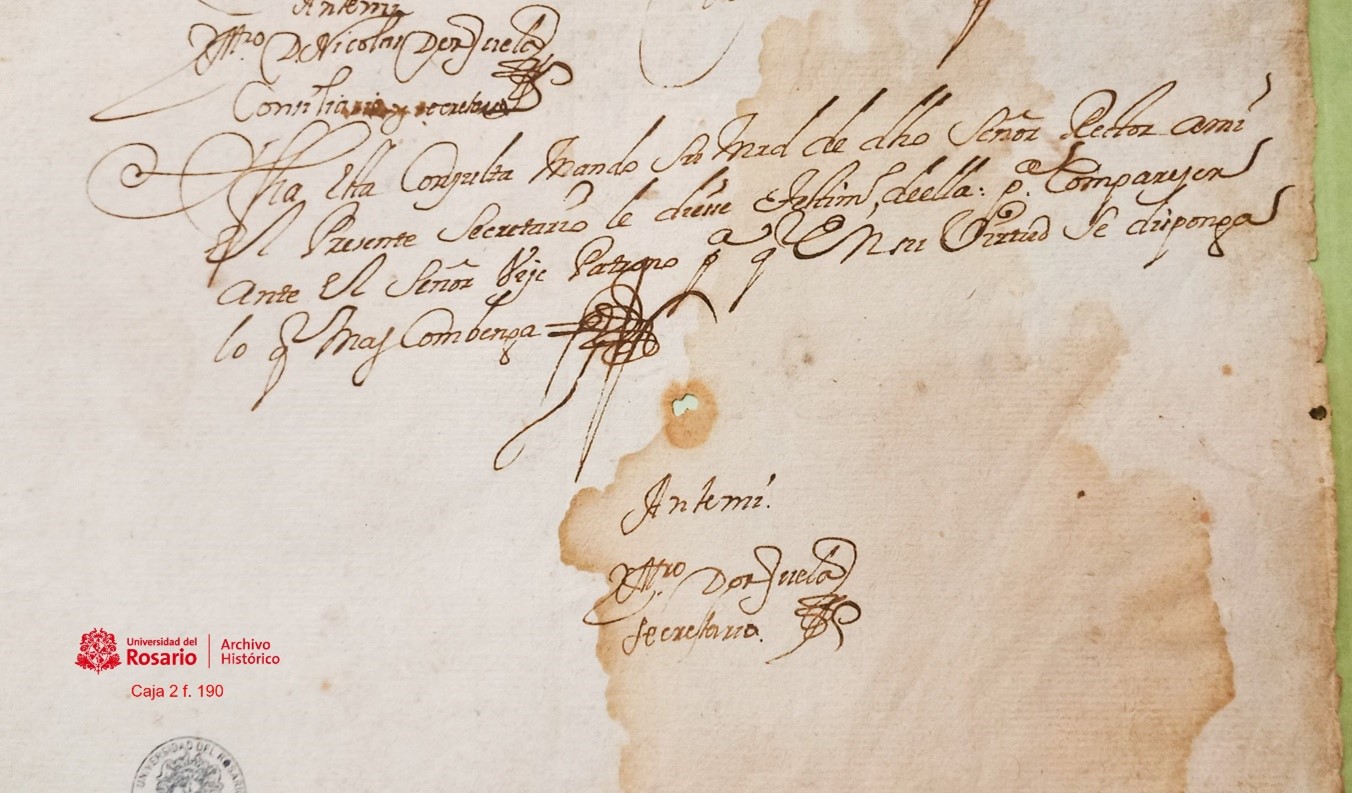 Antemi
Mro. D Nicolas De orzuela
Consiliario y secretario
Esta Consulta Mando su Mrd de dho Señor Rector ami
El Presente Secretario le diesse testimo, de ella: pa Compareser
Ante El Señor Vije Patrono pa q En su Virtud Se disponga
lo q Mas Combenga =
Antemi.
Mro. De orzuela
secretario.
Universidad del
Rosario
Archivo
Histórico
Caja 2 f. 190
UNIVERSIDAD DEL ROSARIO